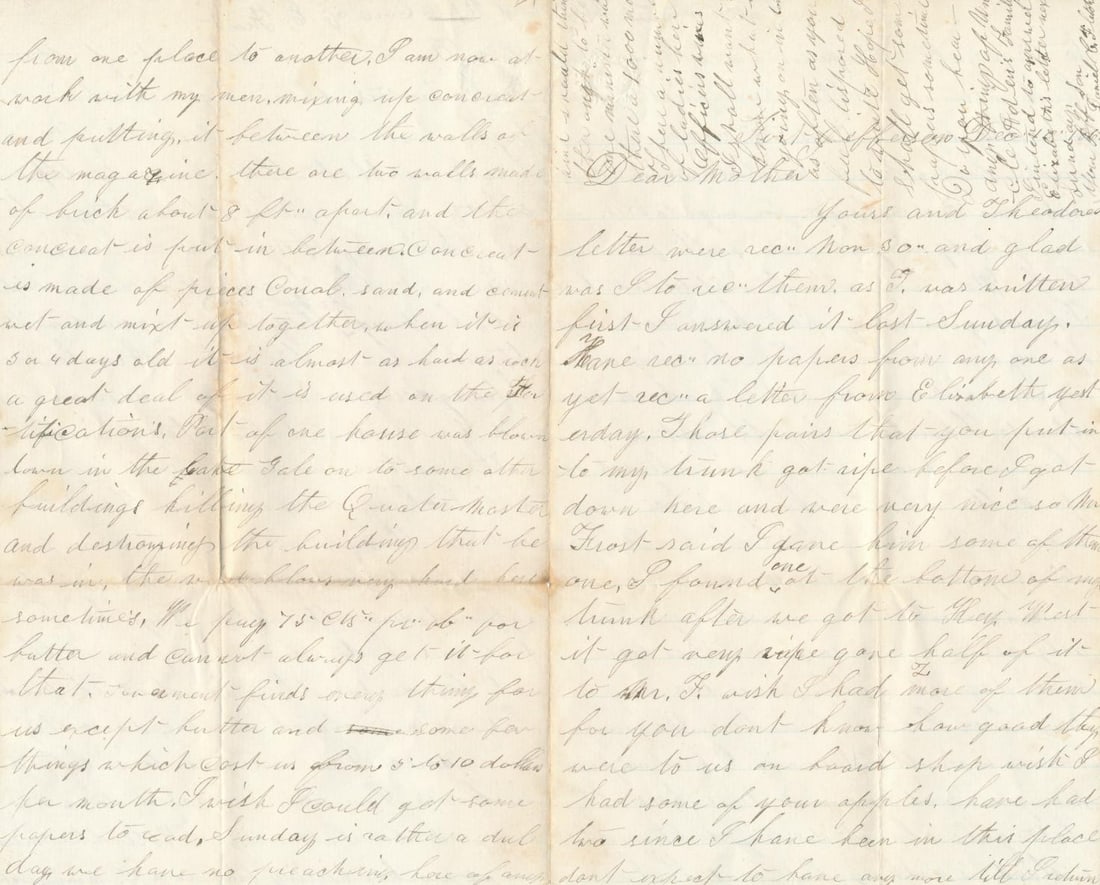 from one place to another, I am now at
work with my men, mixing up concreat
and putting it between the walls of
the magazine. there are two walls made
of brick about 8 ft" apart. and the
concreat is put in between. Concreat
is made of pieces Coral. sand, and cement
wet and mixt up together, when it is
3 or 4 days old it is almost as hard as rock
a great deal of it is used on the For
tifications. Part of one house was blown
down in the gale on to some other
buildings killing the Quater Master
and destroying the building that he
was in, the wind blows very hard here
sometimes, We pay 75 cts" pr" lb" for
butter and cannot always get it for
that. Goverment finds every thing for
us except butter and some few
things which Cost us from 5 to 10 dollars
per month. I wish I could get some
papers to read, Sunday is rather a dul
day we have no preaching here of any
Fort Jefferson Dec
Dear Mother
Yours and Theodores
letter were rec" Nov 30" and glad
was I to rec" them. as T. was written
first I answered it last Sunday.
Have rec" no papers from any one as
yet rec" a letter from Elizabeth yest
erday. Those pairs that you put in
to my trunk got ripe before I got
down here and were very nice so Mr
Frost said I gave him some of them
one, I found one at the bottom of my
trunk after we got to Key West
it got very ripe gave half of it
to Mr. F. wish I had more of them
for you dont know how good they
were to us on board shop wish I
had some of your apples. have had
two since I have been in this place
dont expect to have any more till I return
There is a 1000 men
I shall want
as often as you
shall get some
Do you hear